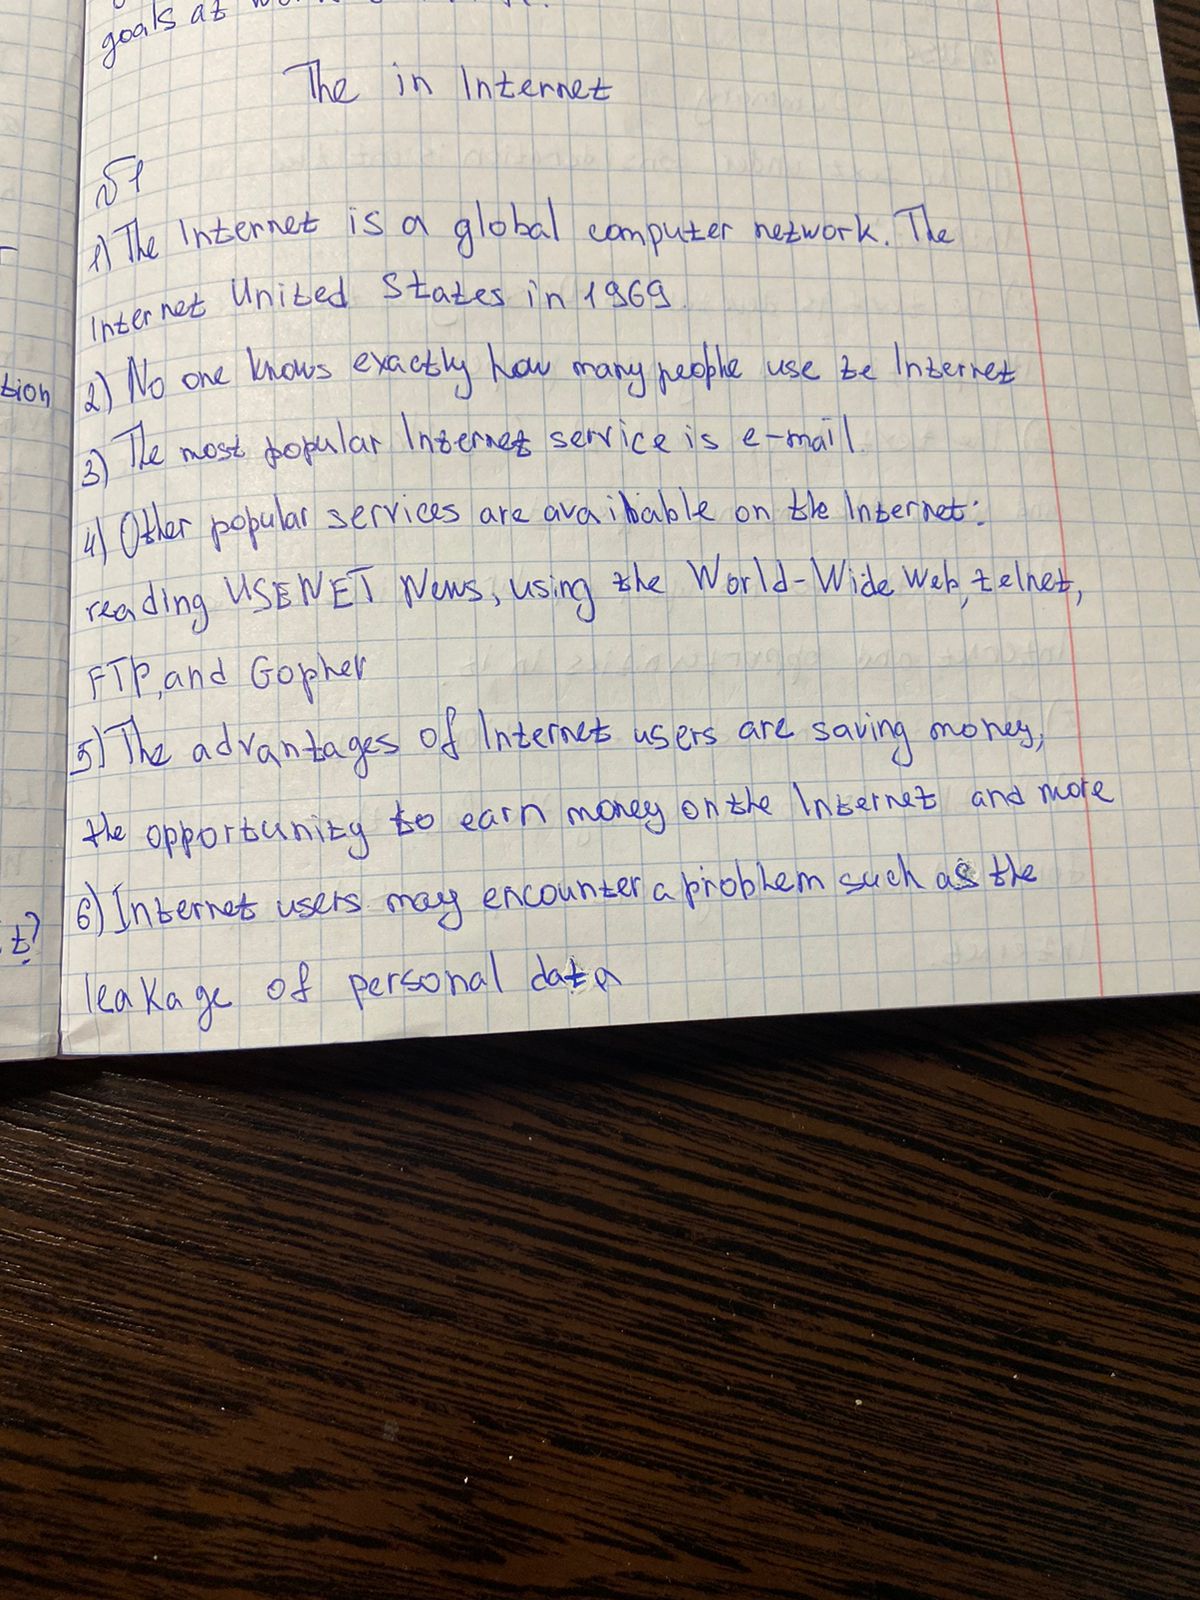 goals at
The in Internet
№1
1) The Internet is a global computer network. The
Internet United States in 1969.
tion
2) No one knows exactly how many people use te Internet
3) The most popular Internet service is e-mail.
4) Other popular services are availabable on the Internet:
reading USENET News, using the World-Wide Web, telnet,
FTP, and Gopher
5) The advantages of Internet users are saving money,
the opportunity to earn money on the Internet and more
6) Internet users may encounter a problem such as the
t?
leakage of personal data